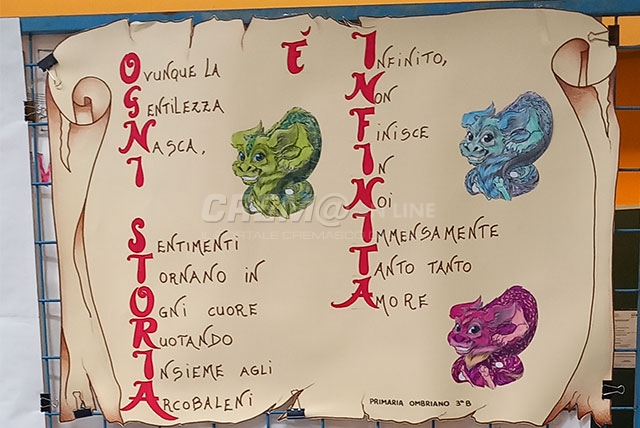 OVUNQUE LA
GENTILEZZA
NASCA,
I
SENTIMENTI
TORNANO IN
OGNI CUORE
RUOTANDO
INSIEME AGLI
ARCOBALENI
È
INFINITO,
NON
FINISCE
IN
NOI
IMMENSAMENTE
TANTO TANTO
AMORE
PRIMARIA OMBRIANO 3ªB
CREM@ ON LINE